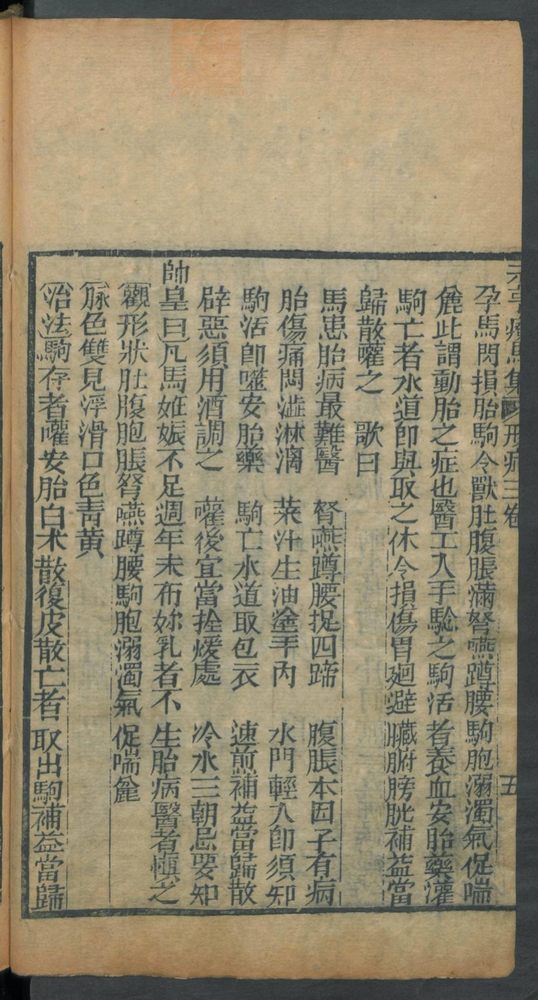 元亨療馬集 形病三卷 五
孕馬閃損胎駒令獸肚腹脹滿弩嚥蹲腰駒胞溺濁氣促喘
麄此謂動胎之症也醫工入手騐之駒活者養血安胎藥灌
駒亡者水道卽與取之休令損傷胃廻避臟腑膀胱補益當
歸散嚾之 歌曰
馬患胎病最難醫 弩嚥蹲腰捉四蹄 腹脹本因子有病
胎傷痛悶澁淋漓 菜汁生油塗手內 水門輕入卽須知
駒活卽嚾安胎藥 駒亡水道取包衣 速煎補益當歸散
辟惡須用酒調之 嚾後宜當拴煖處 冷水三朝忌要知
師皇曰凡馬姙娠不足週年未布妳乳者不生胎病醫者慎之
觀形狀肚腹胞脹弩嚥蹲腰駒胞溺濁氣促喘麄
脉色雙見浮滑口色青黄
治法駒存者嚾安胎白术散復皮散亡者取出駒補益當歸